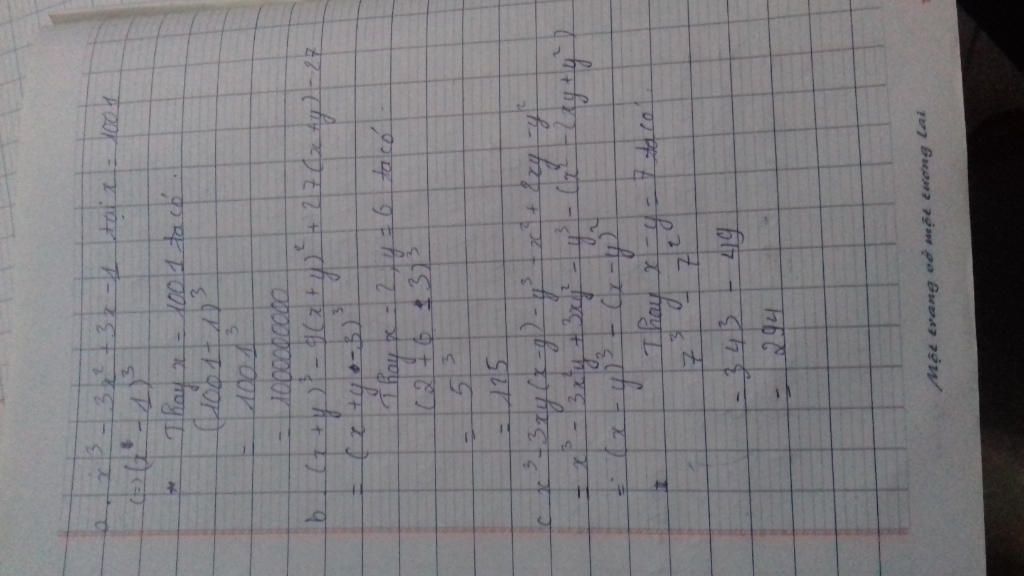 a. x³ - 3x² + 3x - 1 tại x = 1001
(=) (x - 1)³
* Thay x = 1001 ta có:
(1001 - 1)³
= 1001³
= 1000000000
b. (x + y)³ - 9(x + y)² + 27(x + y) - 27
= (x + y - 3)³
Thay x = 2, y = 6 ta có.
(2 + 6 - 3)³
= 5³
= 125
c x³ - 3xy(x - y) - y³ - x² + 2xy - y²
= x³ - 3x²y + 3xy² - y³ - (x² - (xy + y²)
= (x - y)³ - (x - y)²
* Thay x - y = 7 ta có.
7³ - 7²
= 343 - 49
= 294
Một trang vở một tương lai